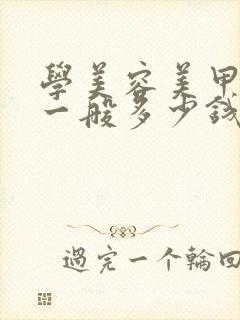 學美容美甲
一般多少錢
過完一个輪回